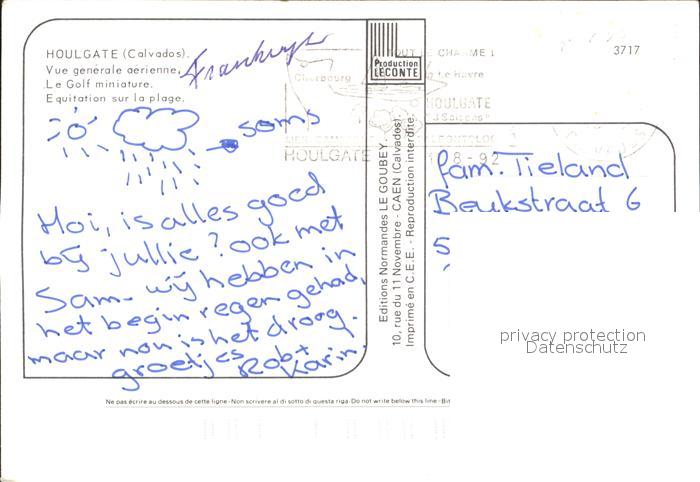 HOULGATE (Calvados).
Vue générale aérienne.
Le Golf miniature.
Equitation sur la plage.
Frankrijk
Production
LECONTE
3717
Cherbourg
Le Havre
HOULGATE
HOULGATE
8-92
soms
Hoi, is alles goed
bij jullie? ook met
Sam- wij hebben in
het begin regen gehad,
maar nou is het droog.
groetjes Rob+
Karin.
Editions Normandes LE GOUBEY
10, rue du 11 Novembre - CAEN (Calvados).
Imprimé en C.E.E. - Reproduction interdite.
fam. Tieland
Beukstraat 6
5
privacy protection
Datenschutz
Ne pas écrire au dessous de cette ligne - Non scrivere al di sotto di questa riga - Do not write below this line - Bit